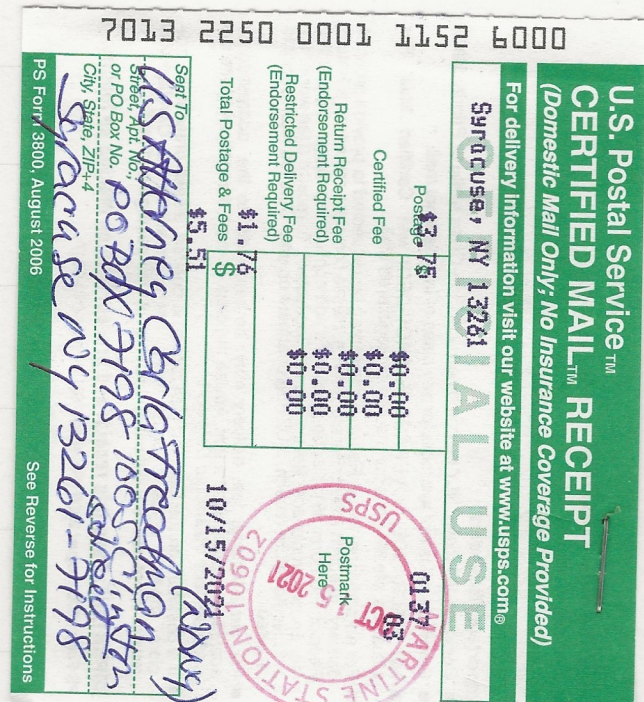 7013 2250 0001 1152 6000
U.S. Postal Service™
CERTIFIED MAIL™ RECEIPT
(Domestic Mail Only; No Insurance Coverage Provided)
For delivery information visit our website at www.usps.com®
OFFICIAL USE
Syracuse, NY 13261
Postage $3.75
Certified Fee $0.00
Return Receipt Fee
(Endorsement Required) $0.00
$0.00
Restricted Delivery Fee
(Endorsement Required) $0.00
$0.00
Total Postage & Fees $ $1.76
$5.51
0137
03
Postmark
Here
MARTINE STATION 10602
USPS
OCT 15 2021
10/15/2021
Sent To
US Attorney Carla Freedman (NDNY)
Street, Apt. No.,
or PO Box No. PO Box 7198 100 S Clinton
Street
City, State, ZIP+4
Syracuse NY 13261-7198
PS Form 3800, August 2006
See Reverse for Instructions